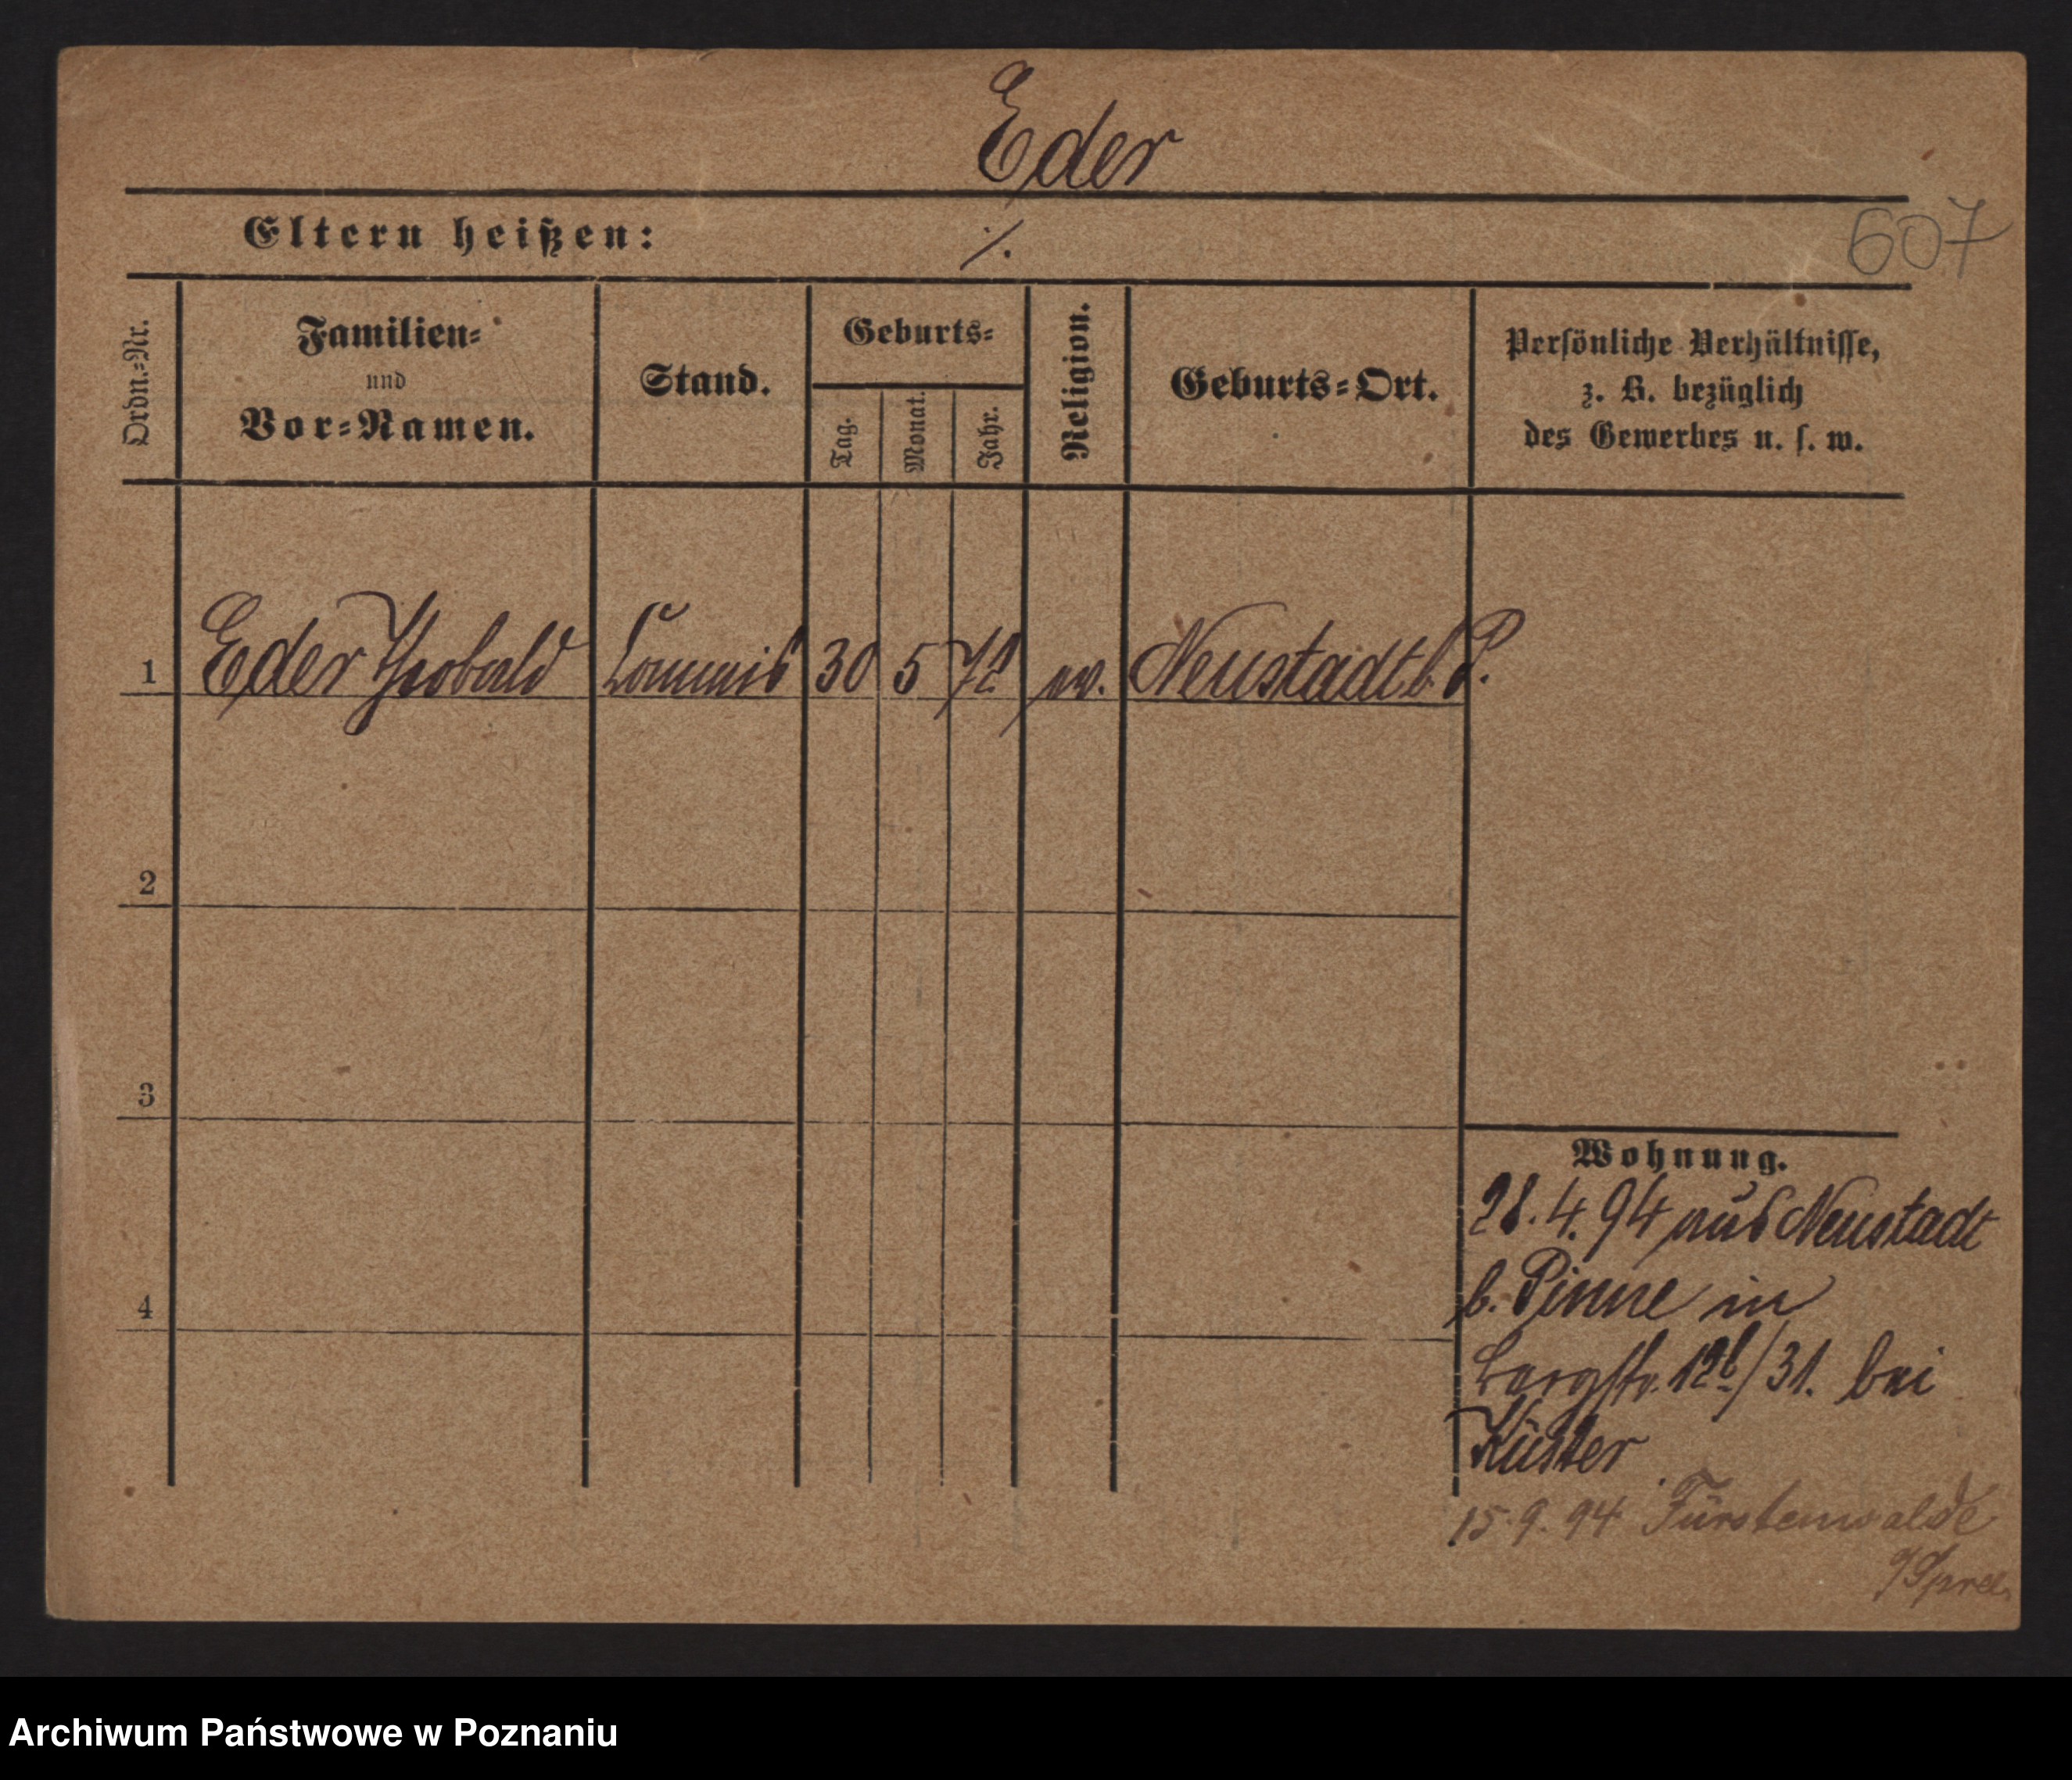 Eder
Eltern heißen: ./.
607
Ordn.-Nr.
Familien-
und
Vor-Namen.
Stand.
Geburts-
Tag.
Monat.
Jahr.
Religion.
Geburts-Ort.
Persönliche Verhältnisse,
z. B. bezüglich
des Gewerbes u. s. w.
1 Eder Theobald Commis 30 5 72 ev. Neustadt b. P.
2
3
4
Wohnung.
28.4.94 aus Neustadt
b. Pinne in
12b/31. bei
Küster
15.9.94 Fürstenwalde
/Spree
Archiwum Państwowe w Poznaniu